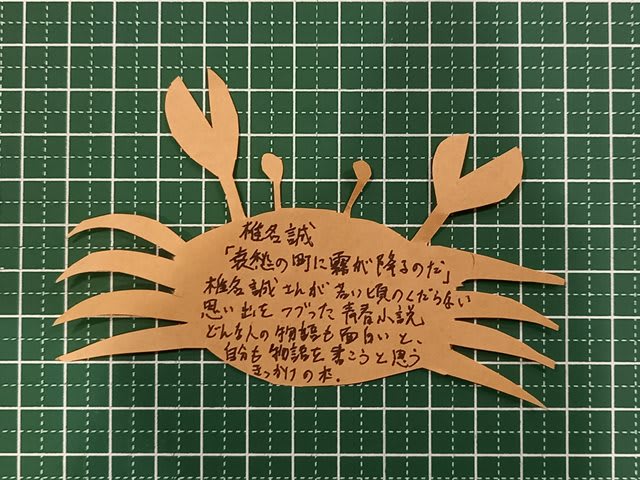 椎名誠
「哀愁の町に霧が降るのだ」
椎名誠さんが若い頃のくだらない
思い出をつづった青春小説
どんな人の物語も面白いと、
自分も物語を書こうと思う
きっかけの本.